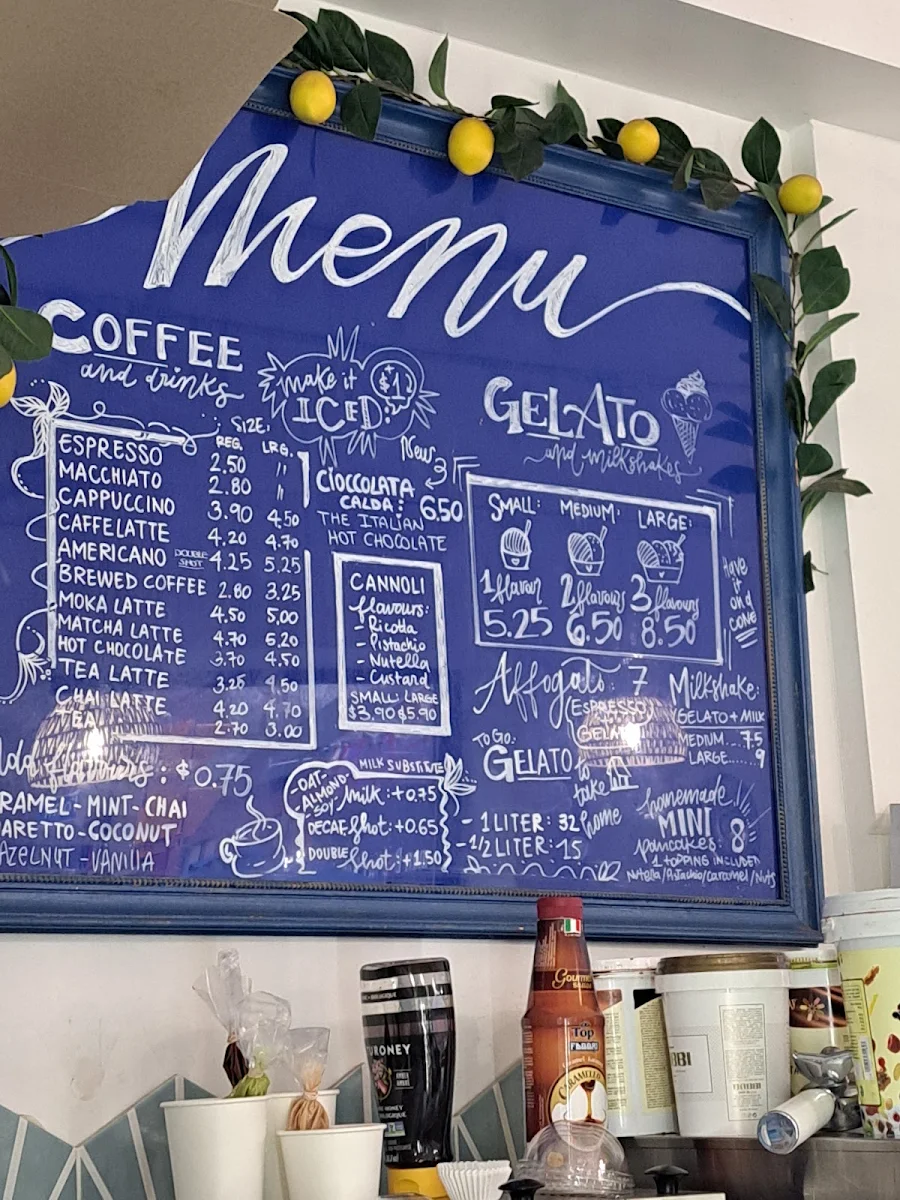 Menu
COFFEE
and drinks
make it $1
ICED
SIZE:
REG. LRG.
ESPRESSO 2.50 "
MACCHIATO 2.80 "
CAPPUCCINO 3.90 4.50
CAFFELATTE 4.20 4.70
AMERICANO DOUBLE SHOT 4.25 5.25
BREWED COFFEE 2.80 3.25
MOKA LATTE 4.50 5.00
MATCHA LATTE 4.70 5.20
HOT CHOCOLATE 3.70 4.50
TEA LATTE 3.25 4.50
CHAI LATTE 4.20 4.70
TEA 2.70 3.00
flavours: $0.75
RAMEL - MINT - CHAI
ARETTO - COCONUT
AZELNUT - VANILIA
New
CIOCCOLATA
CALDA: 6.50
THE ITALIAN
HOT CHOCOLATE
CANNOLI
flavours:
- Ricotta
- Pistachio
- Nutella
- Custard
SMALL: LARGE
$3.90 $5.90
MILK SUBSTITUTE
-OAT-
ALMOND-
SOY milk: +0.75
DECAF Shot: +0.65
DOUBLE Shot: +1.50
GELATO
and milkshakes
SMALL: MEDIUM: LARGE:
1 flavour 2 flavours 3 flavours
5.25 6.50 8.50
Have
it
on a
CONE
Affogato: 7
(ESPRESSO
GELATO)
TO GO:
GELATO
take
home
- 1 LITER: 32
- 1/2 LITER: 15
Milkshake:
GELATO + MILK
MEDIUM....7.5
LARGE......9
homemade
MINI
pancakes: 8
1 TOPPING INCLUDED
Nutella/Pistachio/Caramel/Nuts
Gourmet
Top
FABBRI
CARAMELLO
BI